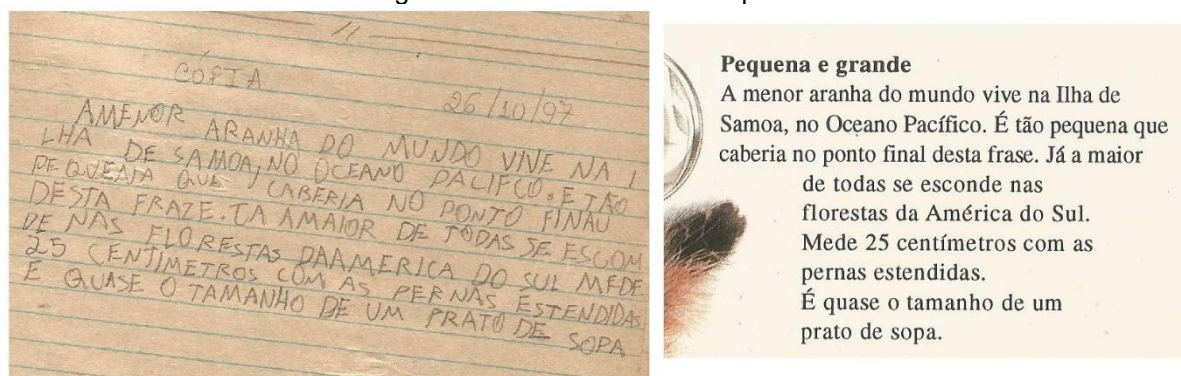 CÓPIA
26/10/97
AMENOR ARANHA DO MUNDO VIVE NA I
LHA DE SAMOA, NO OCEANO PALIFCO. E TÃO
PEQUENA QUE CABERIA NO PONTO FINAU
DESTA FRAZE. TA AMAIOR DE TODAS SE ESCOM
DE NAS FLORESTAS DAAMERICA DO SUL MEDE
25 CENTIMETROS COM AS PERNAS ESTENDIDAS
E QUASE O TAMANHO DE UM PRATO DE SOPA
Pequena e grande
A menor aranha do mundo vive na Ilha de
Samoa, no Oceano Pacífico. É tão pequena que
caberia no ponto final desta frase. Já a maior
de todas se esconde nas
florestas da América do Sul.
Mede 25 centímetros com as
pernas estendidas.
É quase o tamanho de um
prato de sopa.